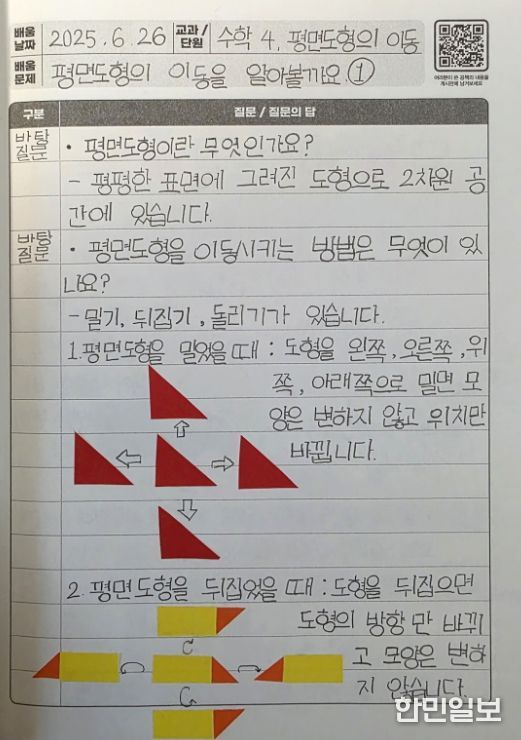 배움 날짜 2025. 6. 26 교과/단원 수학 4. 평면도형의 이동
배움 문제 평면도형의 이동을 알아볼까요 ①
구분 질문 / 질문의 답
바탕질문 • 평면도형이란 무엇인가요?
- 평평한 표면에 그려진 도형으로 2차원 공
간에 있습니다.
바탕질문 • 평면도형을 이동시키는 방법은 무엇이 있
나요?
- 밀기, 뒤집기, 돌리기가 있습니다.
1. 평면도형을 밀었을 때 : 도형을 왼쪽, 오른쪽, 위
쪽, 아래쪽으로 밀면 모
양은 변하지 않고 위치만
바뀝니다.
2. 평면도형을 뒤집었을 때 : 도형을 뒤집으면
도형의 방향만 바뀌
고 모양은 변하
지 않습니다.
한민일보